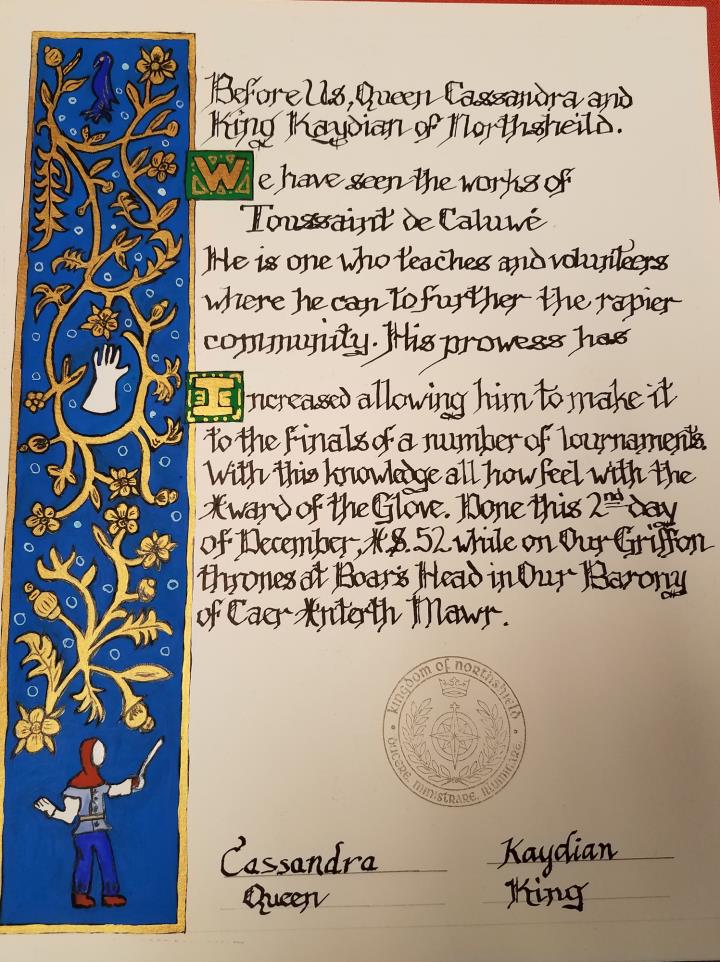 Before Us, Queen Cassandra and
King Kaydian of Northsheild.
We have seen the works of
Toussaint de Caluwé
He is one who teaches and volunteers
where he can to further the rapier
community. His prowess has
Increased allowing him to make it
to the finals of a number of tournaments.
With this knowledge all how feel with the
Award of the Glove. Done this 2nd day
of December, A.S. 52 while on Our Griffon
thrones at Boars Head in Our Barony
of Caer Anterth Mawr.
kingdom of northshield
DUCERE, MINISTRARE, ILLUMINARE
Cassandra
Kaydian
Queen
King